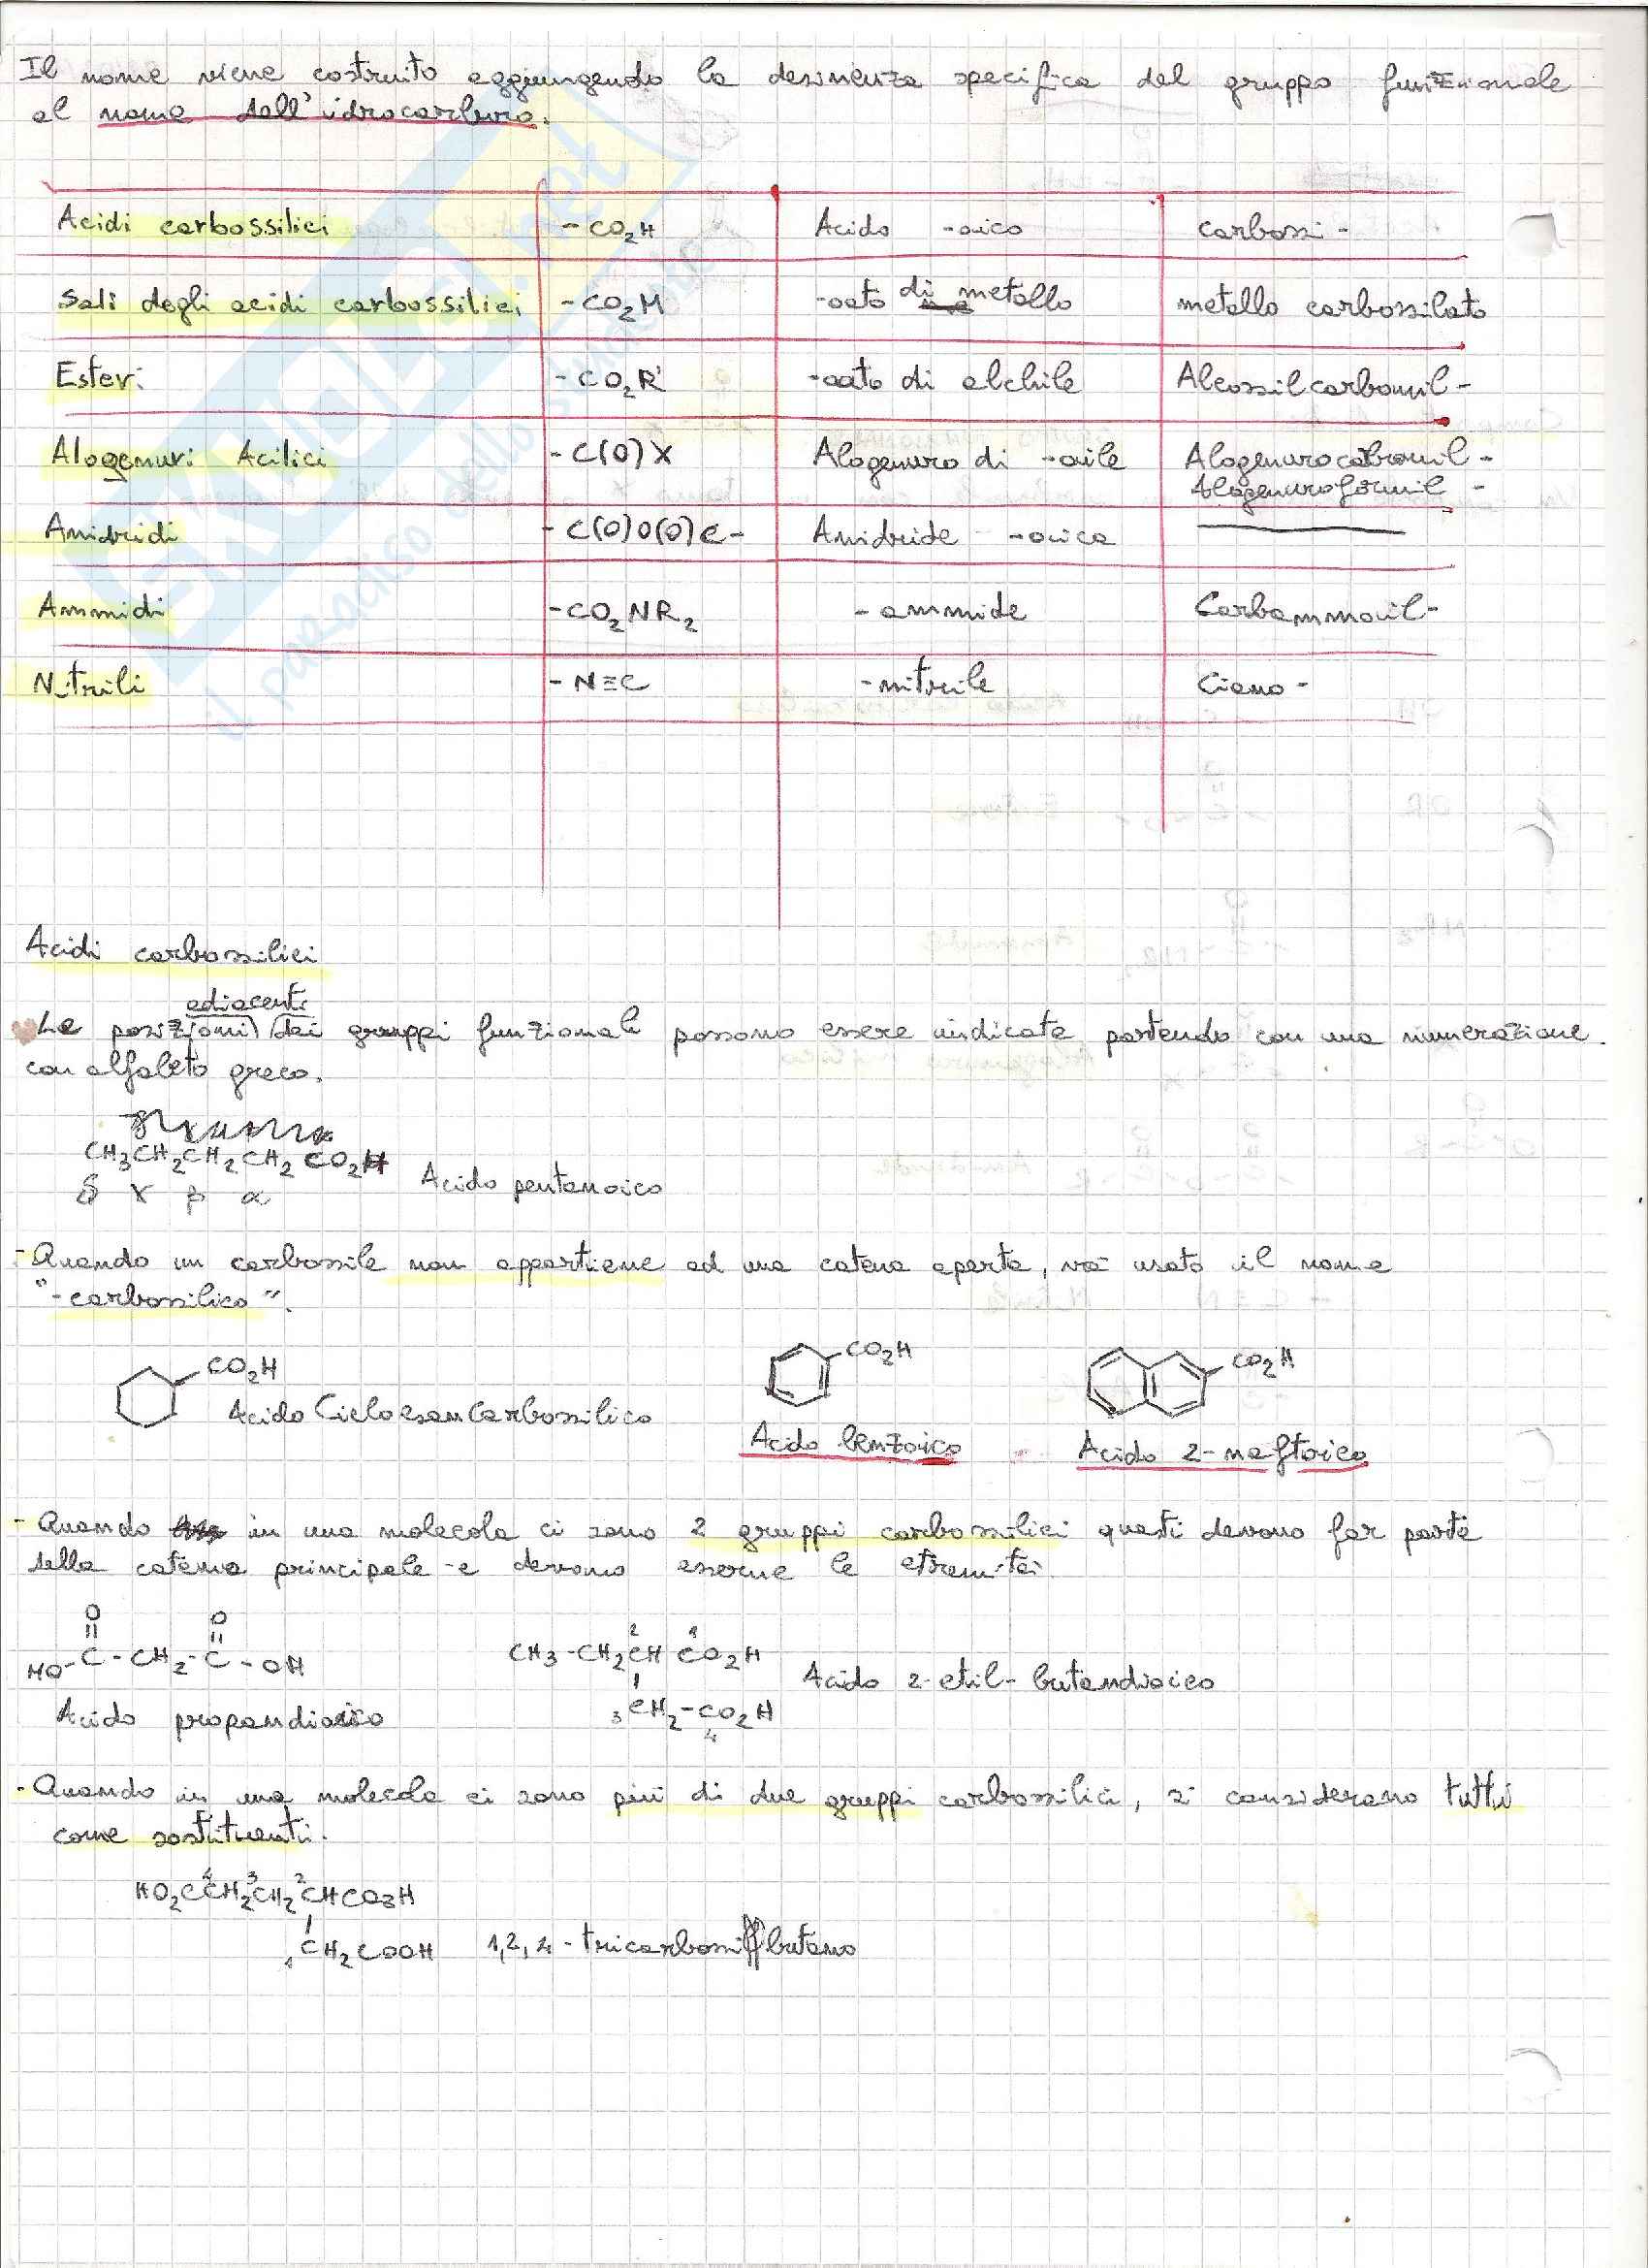 Il nome viene costruito aggiungendo la desinenza specifica del gruppo funzionale
al nome dell'idrocarburo.
Acidi carbossilici -CO2H Acido -oico carbossi-
Sali degli acidi carbossilici -CO2M -oato di metallo metallo carbossilato
Esteri -CO2R' -oato di alchile Alcossilcarbonil-
Alogenuri Acilici -C(O)X Alogenuro di -oile Alogenurocabronil-
Alogenuroformil-
Anidridi -C(O)O(O)C- Anidride -oica
Ammidi -CO2NR2 -ammide Carbammoil-
Nitrili -N≡C -nitrile Ciano-
Acidi carbossilici
adiacenti
Le posizioni dei gruppi funzionali possono essere indicate partendo con una numerazione
con alfabeto greco.
CH3CH2CH2CH2CO2H
δ γ β α Acido pentanoico
- Quando un carbossile non appartiene ad una catena aperta, va usato il nome
"-carbossilico".
CO2H CO2H CO2H
Acido CicloesanCarbossilico Acido benzoico Acido 2-naftoico
- Quando in una molecola ci sono 2 gruppi carbossilici questi devono far parte
della catena principale e devono esserne le estremità.
O O
HO-C-CH2-C-OH CH3-CH2CH CO2H 2 1
Acido propandioico 3CH2-CO2H 4 Acido 2-etil-butandioico
- Quando in una molecola ci sono più di due gruppi carbossilici, si considerano tutti
come sostituenti.
4 3 2
HO2CCH2CH2CHCO3H
1CH2COOH 1,2,4-tricarbossibutano
il paradiso dello studente